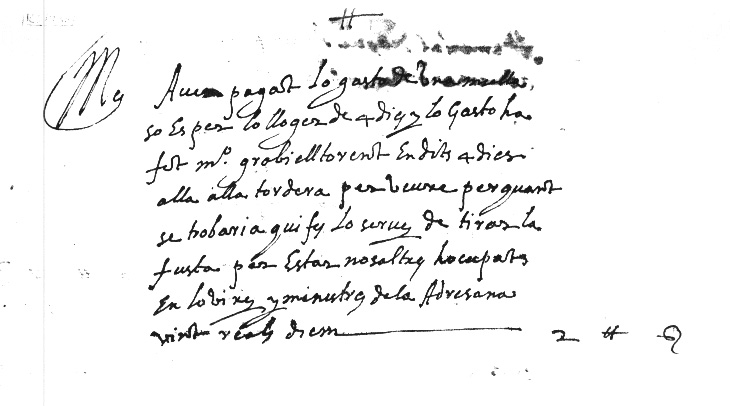 Mes Avem pagat lo gasto de una mulla,
so es per lo lloger de 4 dies y lo Gasto ha
fet mº grabiell torent En dits 4 dies
alla alla tordera per veure per quant
se trobaria qui fes lo servey de tirar la
fusta per Estar nosaltres hocupats
En lo virey y ministres de la Adresana
vint reals diem 2 ⧺